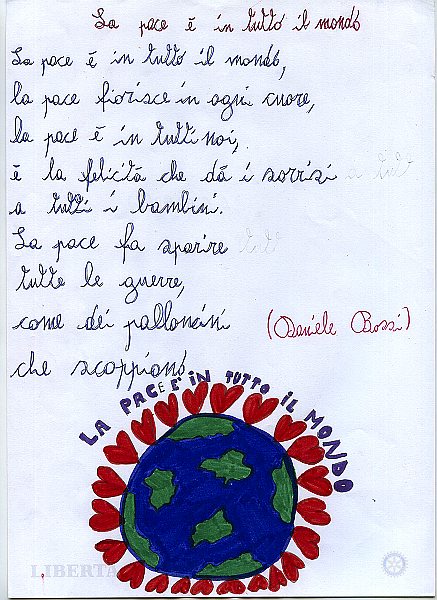 La pace è in tutto il mondo
La pace è in tutto il mondo,
la pace fiorisce in ogni cuore,
la pace è in tutti noi,
è la felicità che dà i sorrisi a tutt
a tutti i bambini.
La pace fa sparire
tutte le guerre,
come dei palloncini
che scoppiano
(Daniele Bossi)
LA PACE È IN TUTTO IL MONDO
LIBERTA